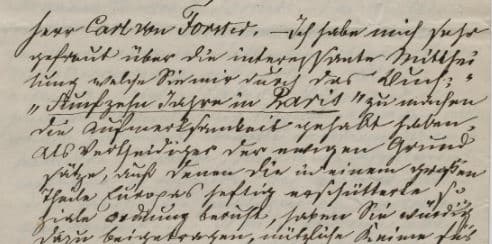 Herr Carl von Forster. – Ich habe mich sehr
gefreut über die interessante Mitthei
lung welche Sie mir durch das Buch:"
„Funfzehn Jahre in Paris" zu machen
die Aufmerksamkeit gehabt haben.
Als Vertheidiger der ewigen Grund
sätze, auf denen die in einem großen
Theile Europas heftig erschütterte so
ziale Ordnung beruht, haben Sie würdig
dazu beigetragen, nützliche Keime für